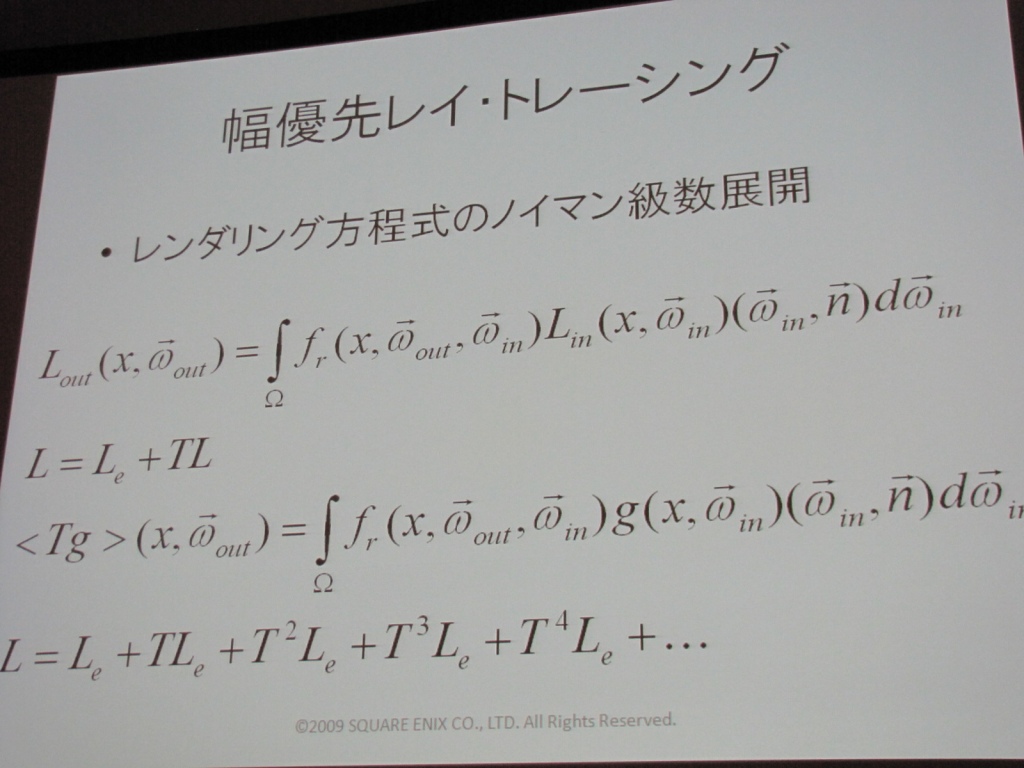 幅優先レイ・トレーシング
• レンダリング方程式のノイマン級数展開
L_out(x, ω⃗_out) = ∫_Ω f_r(x, ω⃗_out, ω⃗_in)L_in(x, ω⃗_in)(ω⃗_in, n⃗)dω⃗_in
L = L_e + TL
<Tg>(x, ω⃗_out) = ∫_Ω f_r(x, ω⃗_out, ω⃗_in)g(x, ω⃗_in)(ω⃗_in, n⃗)dω⃗_in
L = L_e + TL_e + T²L_e + T³L_e + T⁴L_e + …
©2009 SQUARE ENIX CO., LTD. All Rights Reserved.